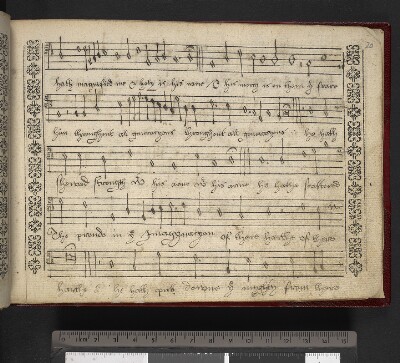 20
hath magnified me & holy is his name, & his mercy is on them that feare
him throughout all generacyons throughout all generacyons he hath
shewed strength with his arme with his arme he hath scattered
The proude in the Imaginacyon of there harts of there
harts he hath put downe the mighty from there